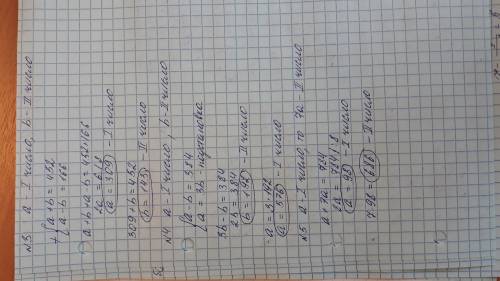 №3 a - I число, b - II число
+ { a + b = 452
a - b = 166
a + b + a - b = 452 + 166
2a = 618
a = 309 - I число
309 + b = 452
b = 143 - II число
№4 a - I число, b - II число
{ a - b = 384
a = 3b - подстановка
3b - b = 384
2b = 384
b = 192 - II число
a = 3·192
a = 576 - I число
№5 a - I число, то 7a - II число
a + 7a = 784
8a = 784 | :8
a = 98 - I число
7·98 = 686 - II число